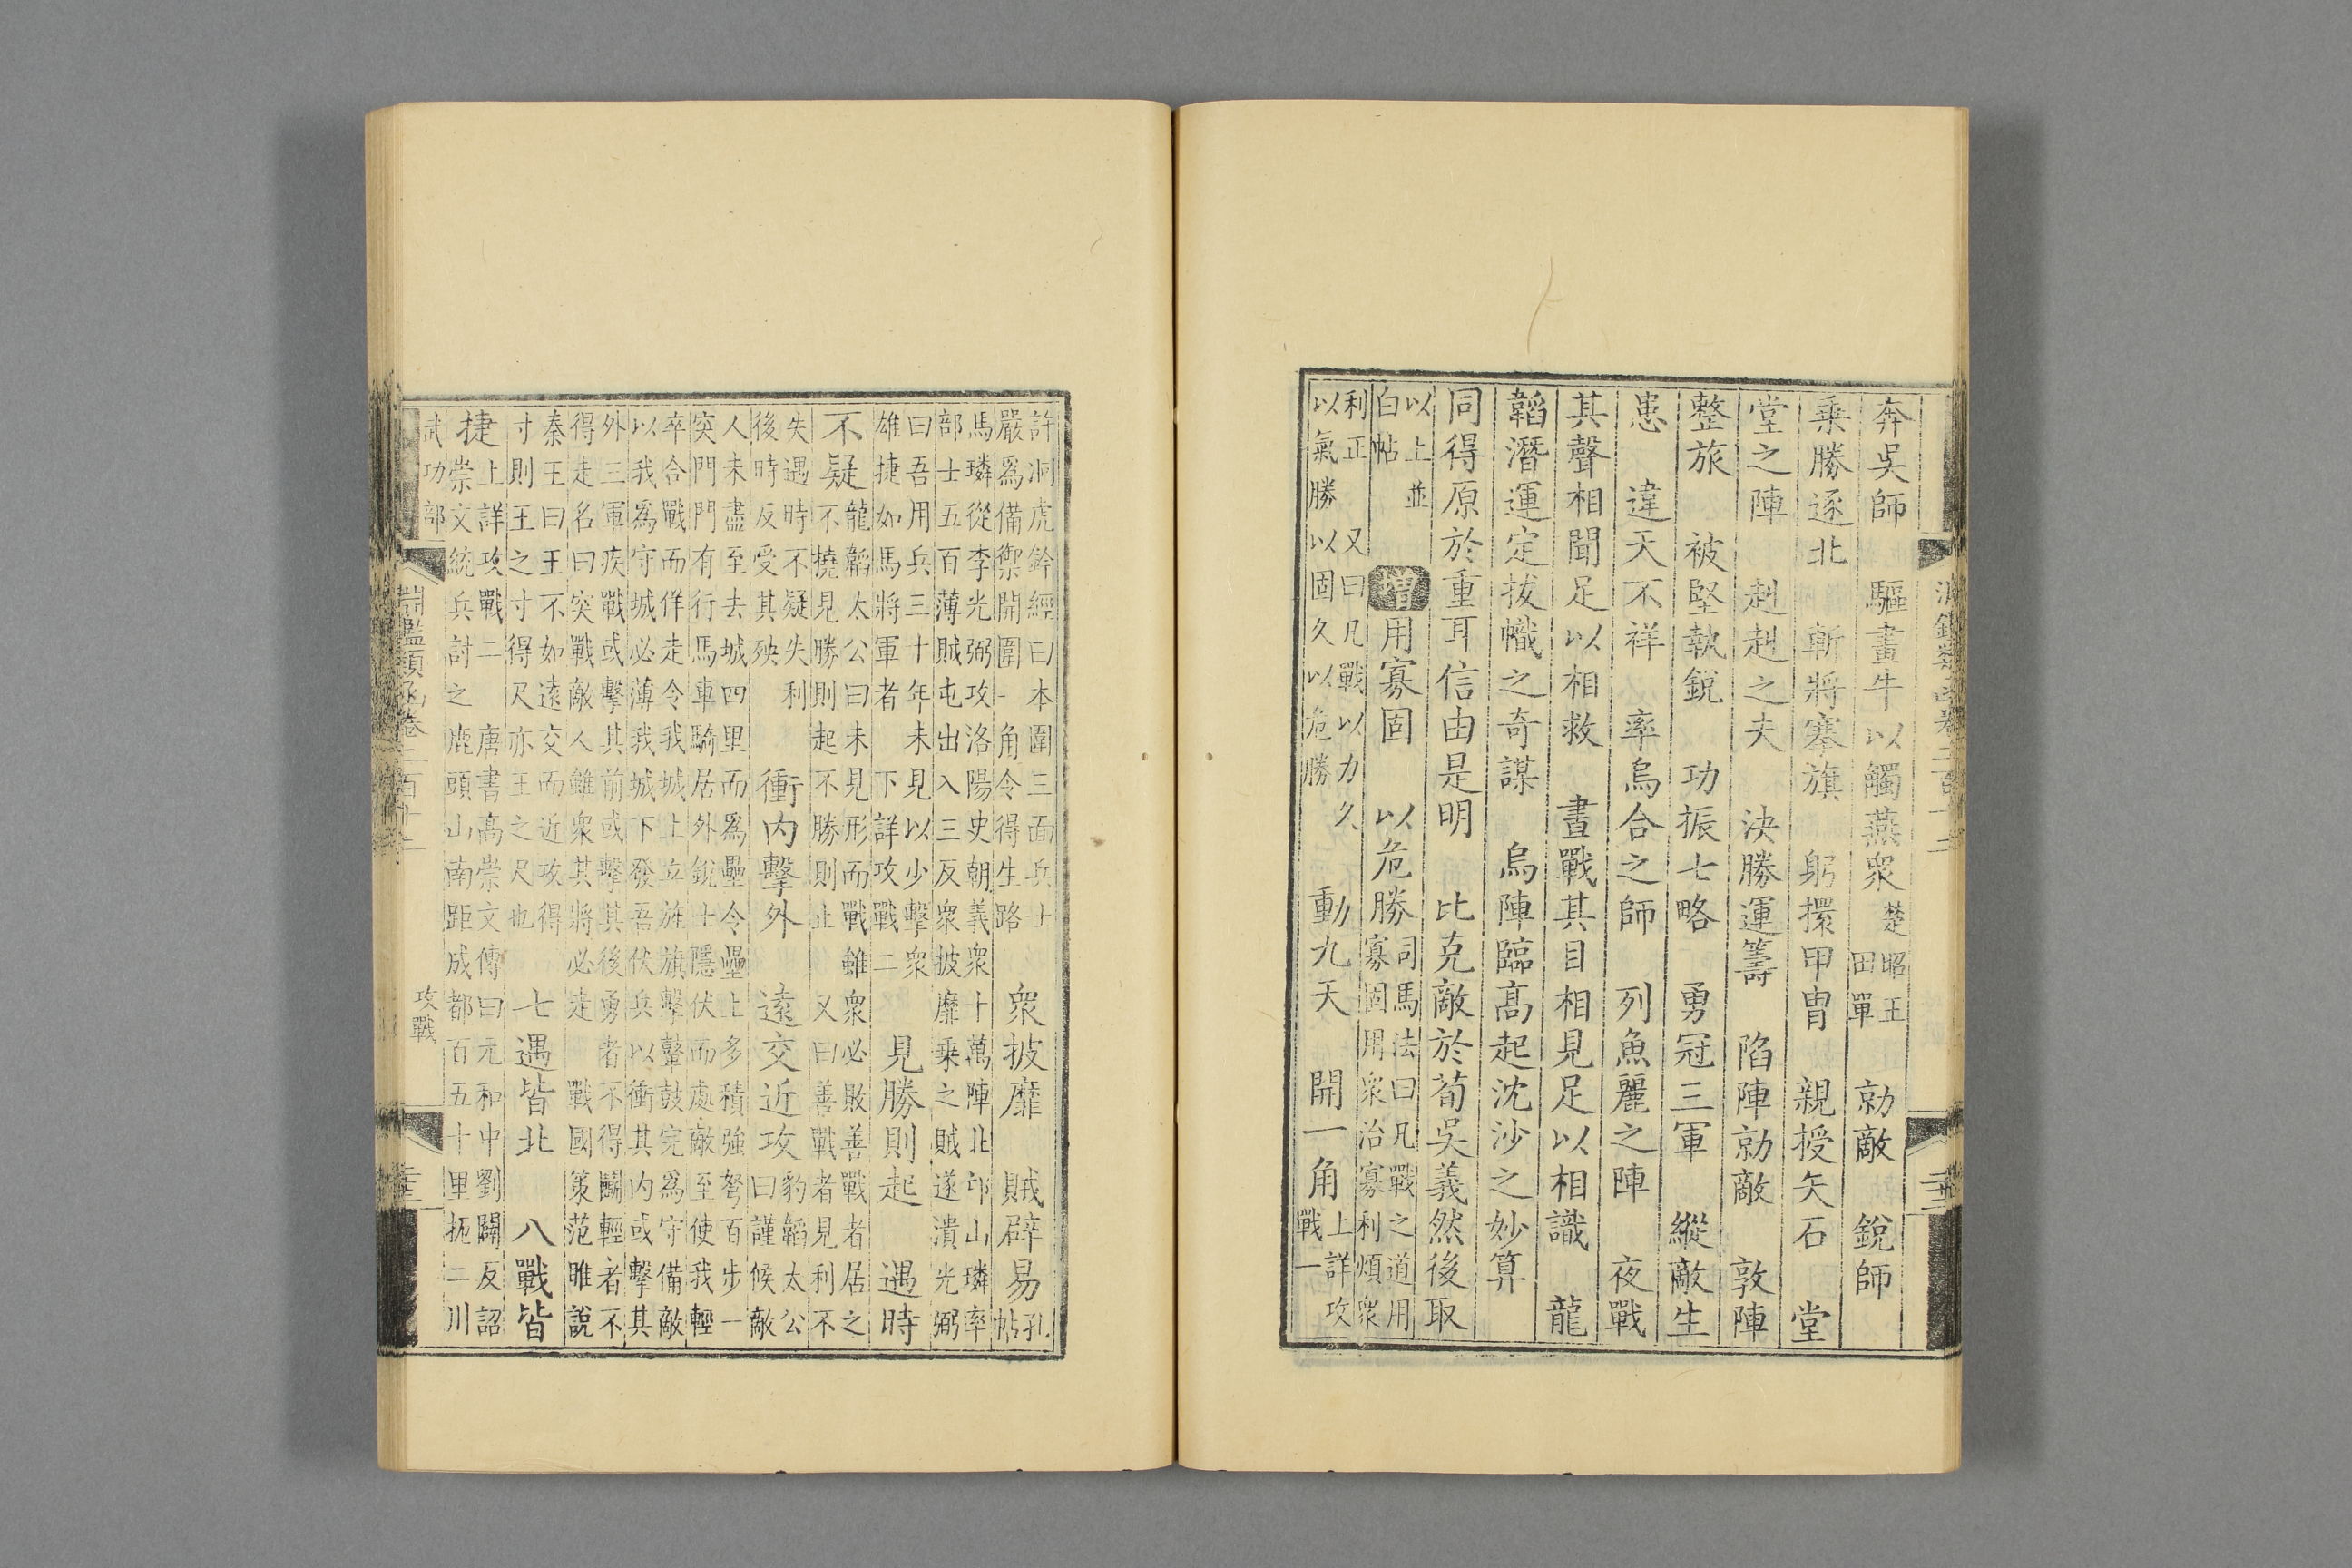 奔吳師 驅晝牛以觸燕衆 楚昭王 田單 勍敵 銳師
乘勝逐北 斬將搴旗 躬擐甲冑 親授矢石 堂
堂之陣 赳赳之夫 決勝運籌 陷陣勍敵 敦陣
整旅 被堅執銳 功振七略 勇冠三軍 縱敵生
患 違天不祥 率烏合之師 列魚麗之陣 夜戰
其聲相聞足以相救 晝戰其目相見足以相識 龍
韜潛運定拔幟之奇謀 烏陣臨高起沈沙之妙算
同得原於重耳信由是明 比克敵於荀吳義然後取
以上並白帖 增 用寡固 以危勝 司馬法曰凡戰之道用寡固用衆治寡利煩衆
利正 又曰凡戰以力久以氣勝以固久以危勝 動九天 開一角 上詳攻戰一
許洞虎鈐經曰本圍三面兵士嚴爲備禦開圍一角令得生路 衆披靡 賊辟易 孔帖
馬璘從李光弼攻洛陽史朝義衆十萬陣北邙山璘率部士五百薄賊屯出入三反衆披靡乘之賊遂潰光弼
曰吾用兵三十年未見以少擊衆雄捷如馬將軍者 下詳攻戰二 見勝則起 遇時
不疑 龍韜太公曰未見形而戰雖衆必敗善戰者居之不撓見勝則起不勝則止 又曰善戰者見利不
失遇時不疑失利後時反受其殃 衝內擊外 遠交近攻 豹韜太公曰謹候敵
人未盡至去城四里而爲壘令壘上多積強弩百步一突門門有行馬車騎居外銳士隱伏而處敵至使我輕
卒合戰而佯走令我城上立旌旗擊鼙鼓完爲守備敵以我爲守城必薄我城下發吾伏兵以衝其內或擊其
外三軍疾戰或擊其前或擊其後勇者不得鬭輕者不得走名曰突戰敵人雖衆其將必走 戰國策范雎說
秦王曰王不如遠交而近攻得寸則王之寸得尺亦王之尺也 七遇皆北 八戰皆
捷 上詳攻戰二 唐書高崇文傳曰元和中劉闢反詔崇文統兵討之鹿頭山南距成都百五十里扼二川
武功部 淵鑑類函卷二百十二 攻戰